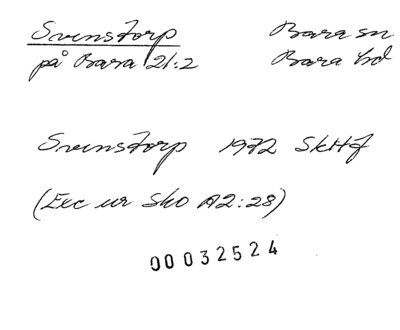 Svenstorp
på Bara 21:2
Bara sn
Bara hd
Svenstorp 1972 SkHf
(Exc ur Sko A2:28)
00032524